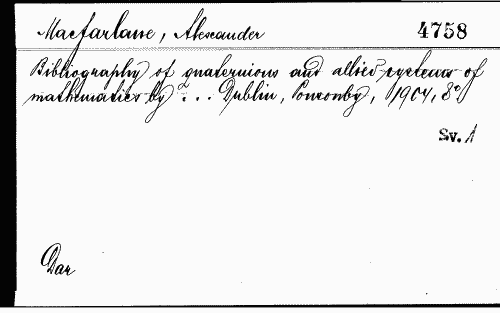 Macfarlane, Alexander 4758
Bibliography of quaternions and allied systems of
mathematics by ... Dublin, Ponsonby, 1904, 8°
Sv. 1
Dar